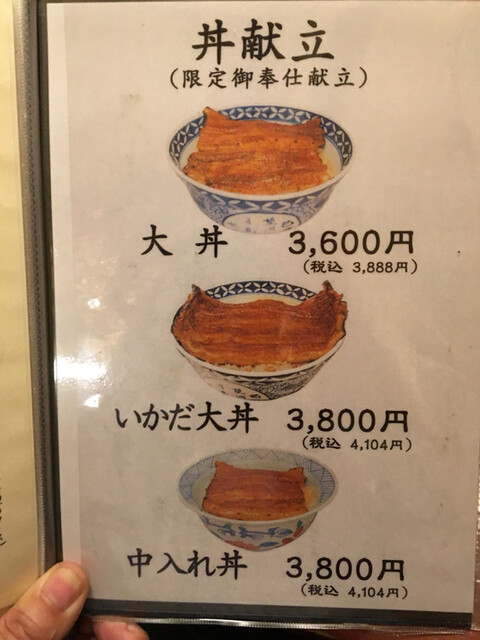 丼献立
(限定御奉仕献立)
大丼 3,600円
(税込 3,888円)
いかだ大丼 3,800円
(税込 4,104円)
中入れ丼 3,800円
(税込 4,104円)